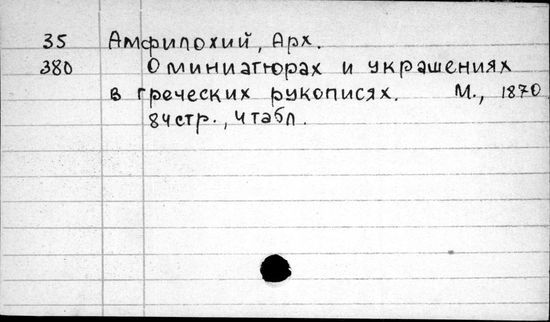 35 Амфилохий, Арх.
380 О миниатюрах и украшениях
в греческих рукописях. М., 1870
84 стр., 4 табл.